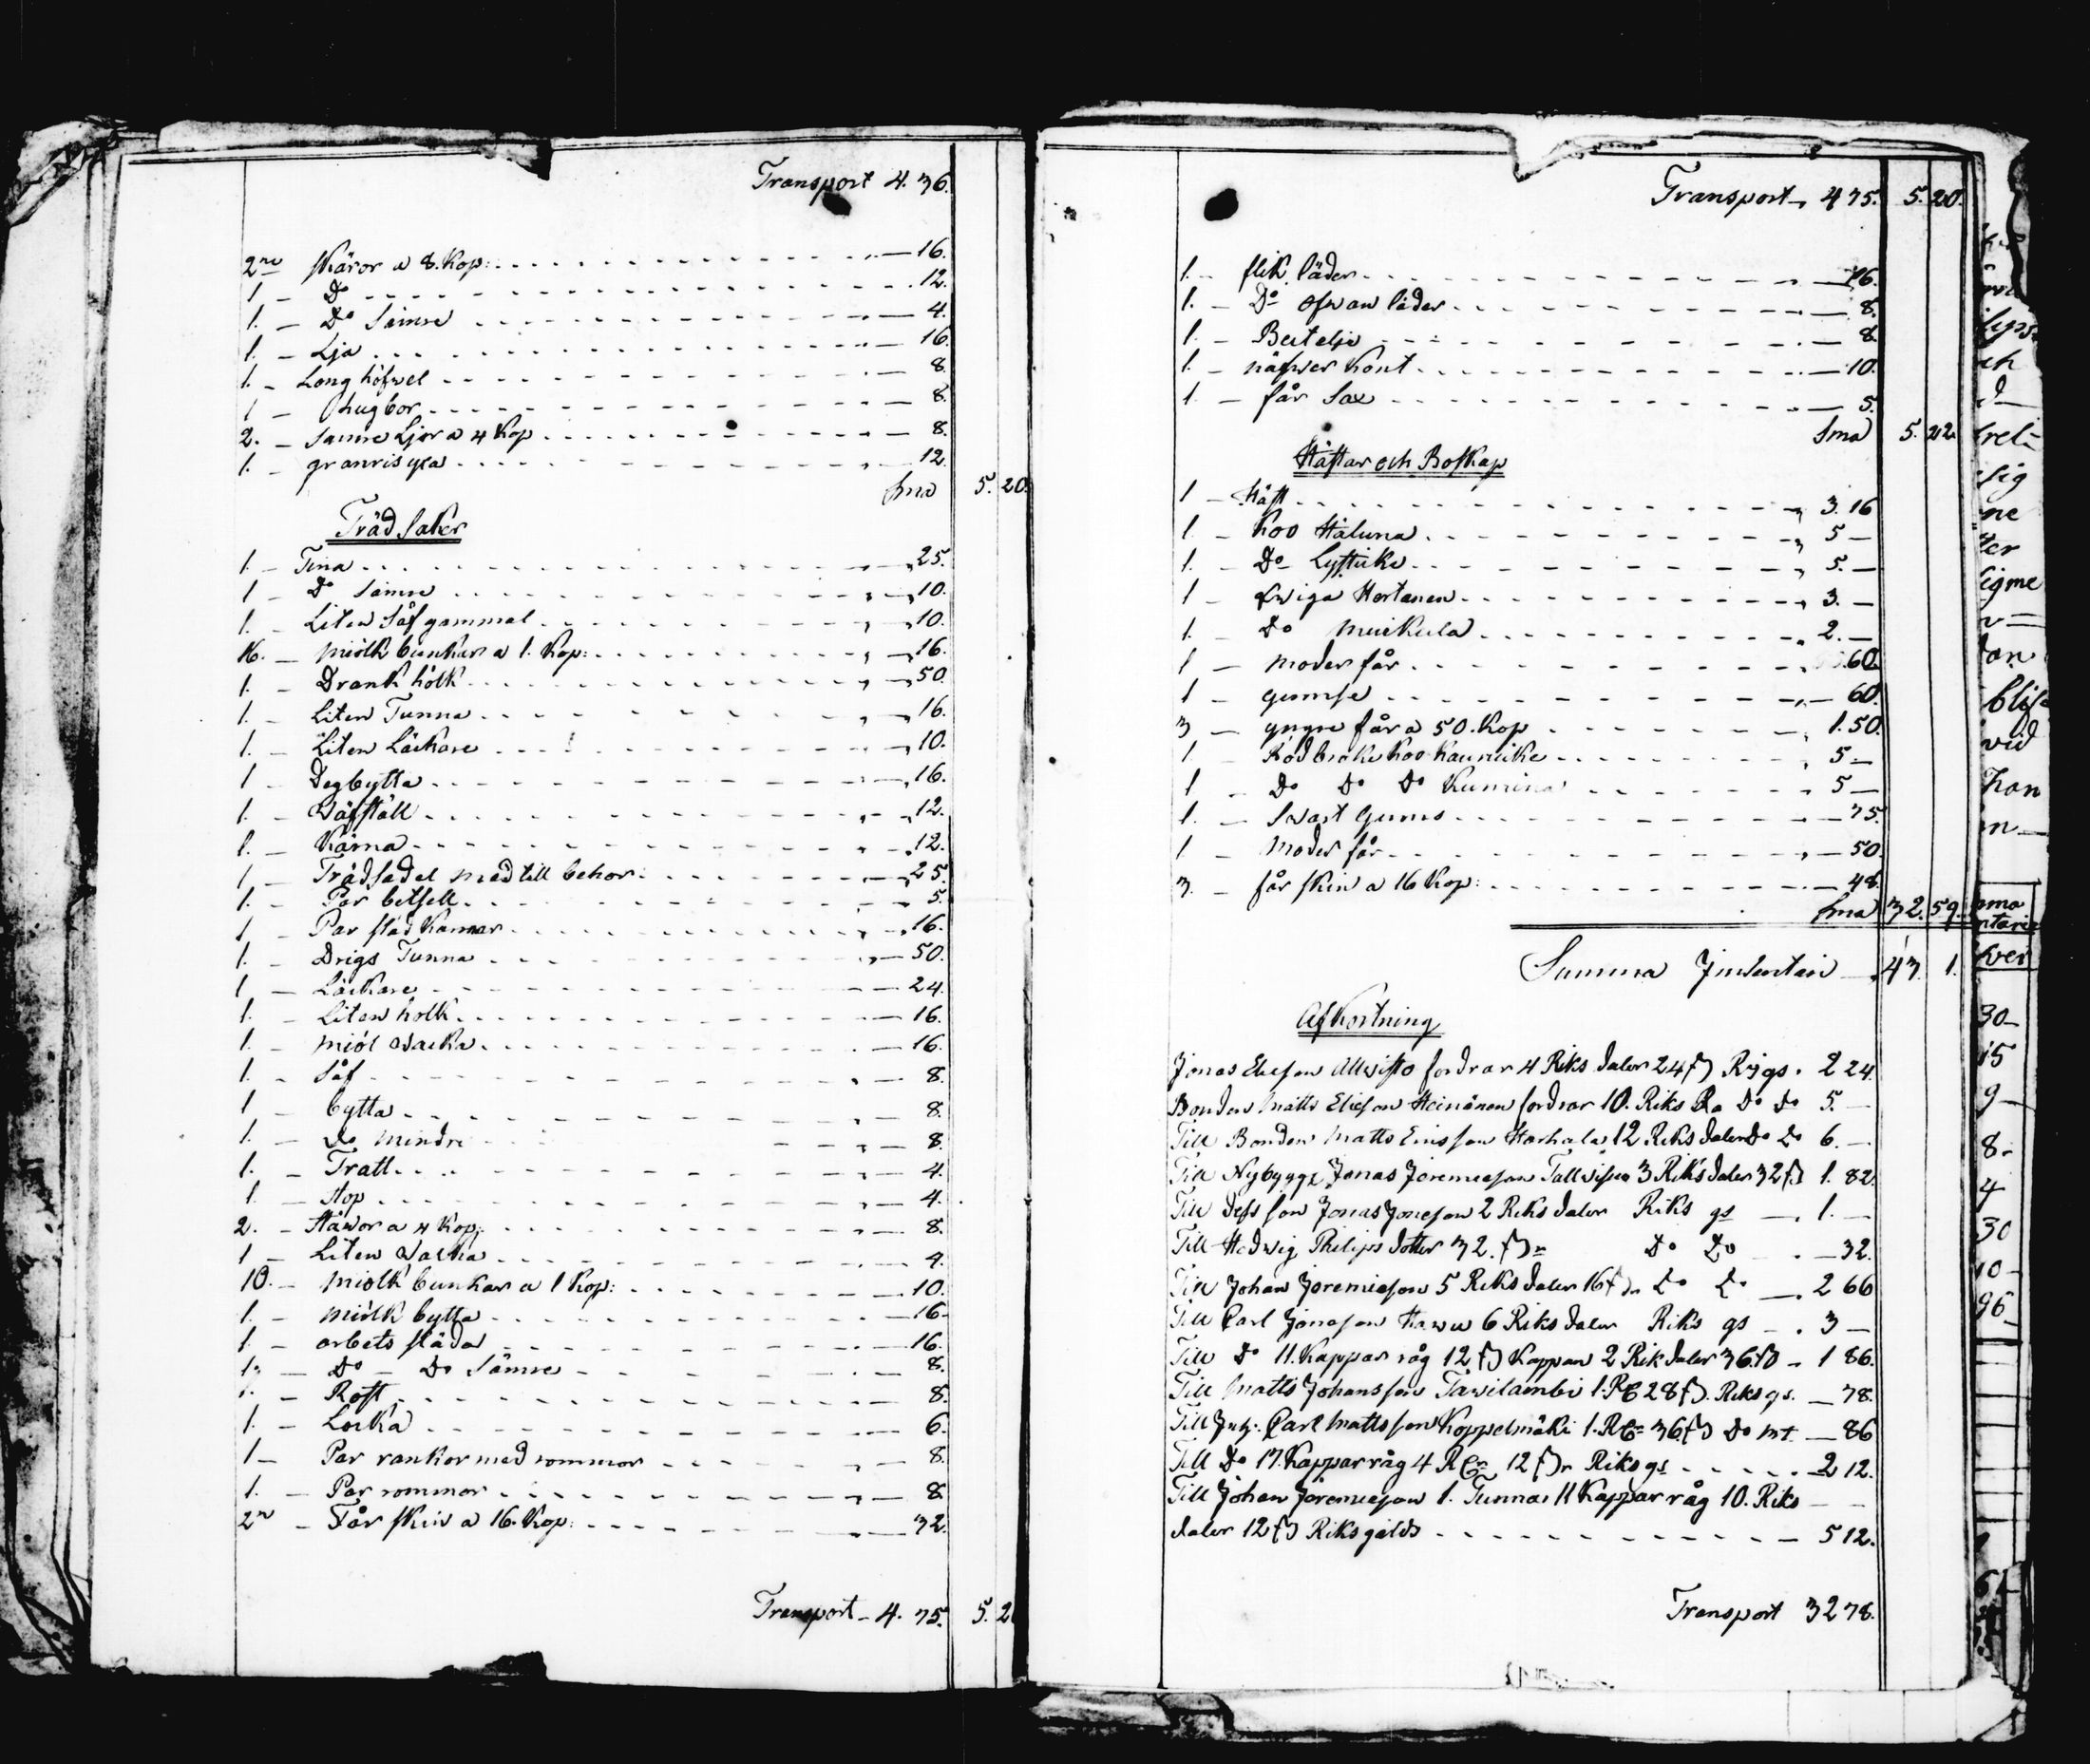 Transport 4. 36.
2ne skäror a 8. Kop: 16.
1 - Do 12.
1. - Do Sämre 4.
1. - Lja 16.
1. - Long höfwel 8.
1 - hugbor 8.
2. - Samre Ljor a 4 Kop 8.
1. - granris yxa 12.
Sma 5. 20.
Träd Saker
1. - Tina 25.
1 - Do Sämre 10.
1. - Liten Såf gammal 10.
16. - miölk bunkar a 1. Kop: 16.
1. - Drank hölk 50.
1. - Liten Tunna 16.
1. - Liten Läckare 10.
1 - Degbytta 16.
1. - Wäfställ 12.
1. - Kärna 12.
1 - Trädsadel med till behör: 25.
1. - Par betsell 5.
1 - Par släd Kamar 16.
1. - Drigs Tunna 50.
1 - Läckare 24.
1. - Liten holk 16.
1. - miöl Wacka 16.
1. - Såf 8.
1 - bytta 8.
1. - Do mindre 8.
1. - Tratt 4.
1 - stop 4.
2. - Håwor a 4 Kop: 8.
1 - Liten Wacka 4.
10. - miölk bunkar a 1 Kop: 10.
1. - miölk bytta 16.
1. - arbets släda 16.
1. - Do - Do Sämre 8.
1. - Rost 8.
1. - Locka 6.
1 - Par rankor med rommor 8.
1. - Par rommor 8
2ne - Får skin a 16. Kop: 32.
Transport - 4. 75. 5. 2
Transport 475. 5. 20.
1. - flik läder 16.
1. - Do ofwan läder 8.
1. - Buteljo 8.
1 - näfwer Kont 10.
1 - får Sax 5.
Sma 5. 22.
Hästar och Boskap
1 - Häst 3. 16
1. - Koo Haluna 5 -
1. - Do Lystike 5. -
1 - qwiga Hertanen 3. -
1. - Do Muikula 2. -
1 - moder får 60.
1 - gumse 60.
3 - yngre får a 50. Kop 1. 50.
1 - Röd broki Koo Kaunicke 5 -
1 - Do Do Do Kumina 5 -
1. - Swart gums 75.
1 - Moder får 50.
3. - får skin a 16 Kop: 48.
Sma 32. 59.
Summa Inwentari 43. 1.
Afkortning
Jonas Eliesson fordrar 4 Riks daler 24 ß Rijgs. 2 24.
Bonden Matts Eliesson Heinänen fordrar 10. Riks Do Do 5. -
Till Bonden Matts Ericsson Harhala 12 Riks daler Do Do 6. -
Till Nybygge Jonas Joremiesson 3 Riks daler 32 ß 1. 82.
Till dess son Jonas Joneson 2 Riks daler Riks gs 1. -
Till Hedwig Philips dotter 32. ß Do Do 32.
Till Johan Joremieson 5 Riks daler 16 ß Do Do 2 66
Till Carl Jonason 6 Riks daler Riks gs 3 -
Till Do 11. Kappar råg 12 ß Kappan 2 Rik daler 36. ß 1 86.
Till Matts Johansson 1. Rd 28 ß. Riksgs. 78.
Till Carl Mattsson Koppelmäki 1. Rd 36 ß Do 86
Till Do 17. Kappar råg 4 Rdr 12 ß Riksgs 2 12.
Till Johan Joremieson 1. Tunna 11 Kappar råg 10. Riks
daler 12 ß Riksgälds 5 12.
Transport 32 78.